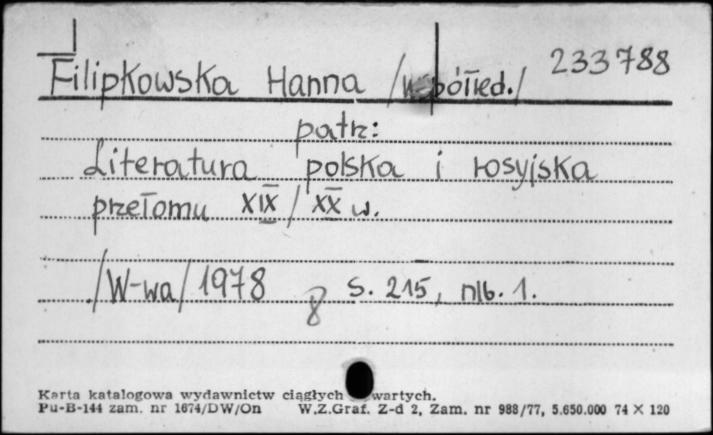 Filipkowska Hanna /współred./ 233788
patrz:
Literatura polska i rosyjska
przełomu XIX/XX w.
/W-wa/ 1978 8 s. 215, nlb. 1.
Karta katalogowa wydawnictw ciągłych wartych.
Pu-B-144 zam. nr 1674/DW/On W.Z.Graf. Z-d 2, Zam. nr 988/77, 5.650.000 74 X 120